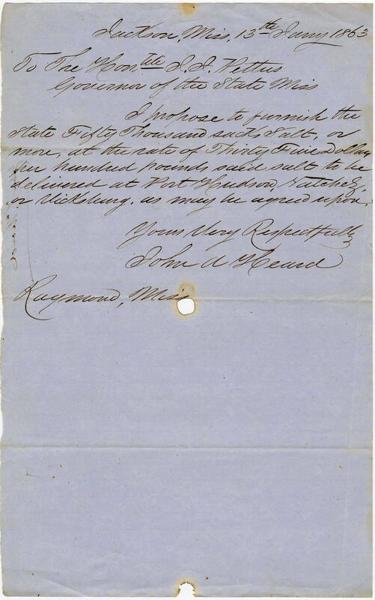 Jackson, Miss, 13th Jany 1863
To The Honble J. J. Pettus
Governor of the State Miss
I propose to furnish the
State Fifty Thousand sacks Salt, or
more, at the rate of Thirty Five Dollars
per hundred pounds said salt to be
delivered at Port Hudson, Natchez,
or Vicksburg, as may be agreed upon,
Yours Very Respectfully
John A Heard
Raymond, Miss